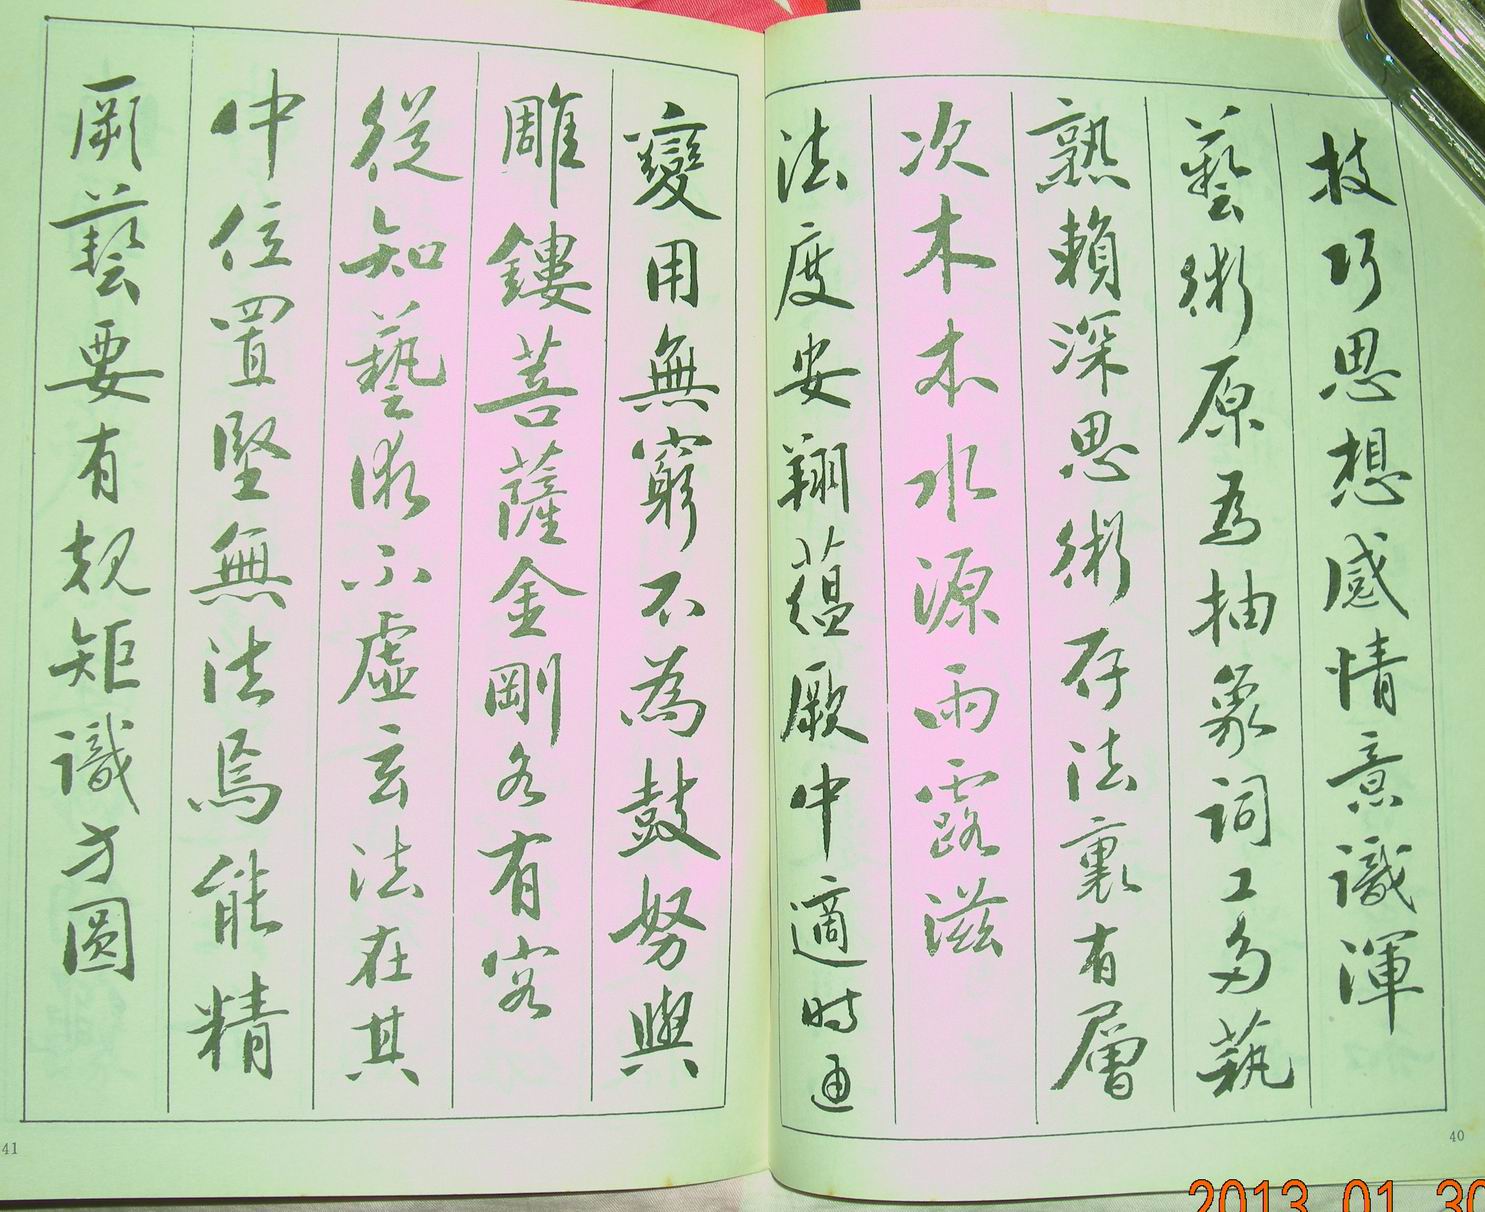 技巧思想感情意識渾
藝術原為抽象詞工多藝
熟賴深思術存法裏有層
次木本水源雨露滋
法度安翔蘊厥中適時通
變用無窮不為鼓努與
雕鏤菩薩金剛各有容
從知藝術不虛玄法在其
中位置堅無法焉能精
厥藝要有規矩識方圓
40
41
2013 01 30